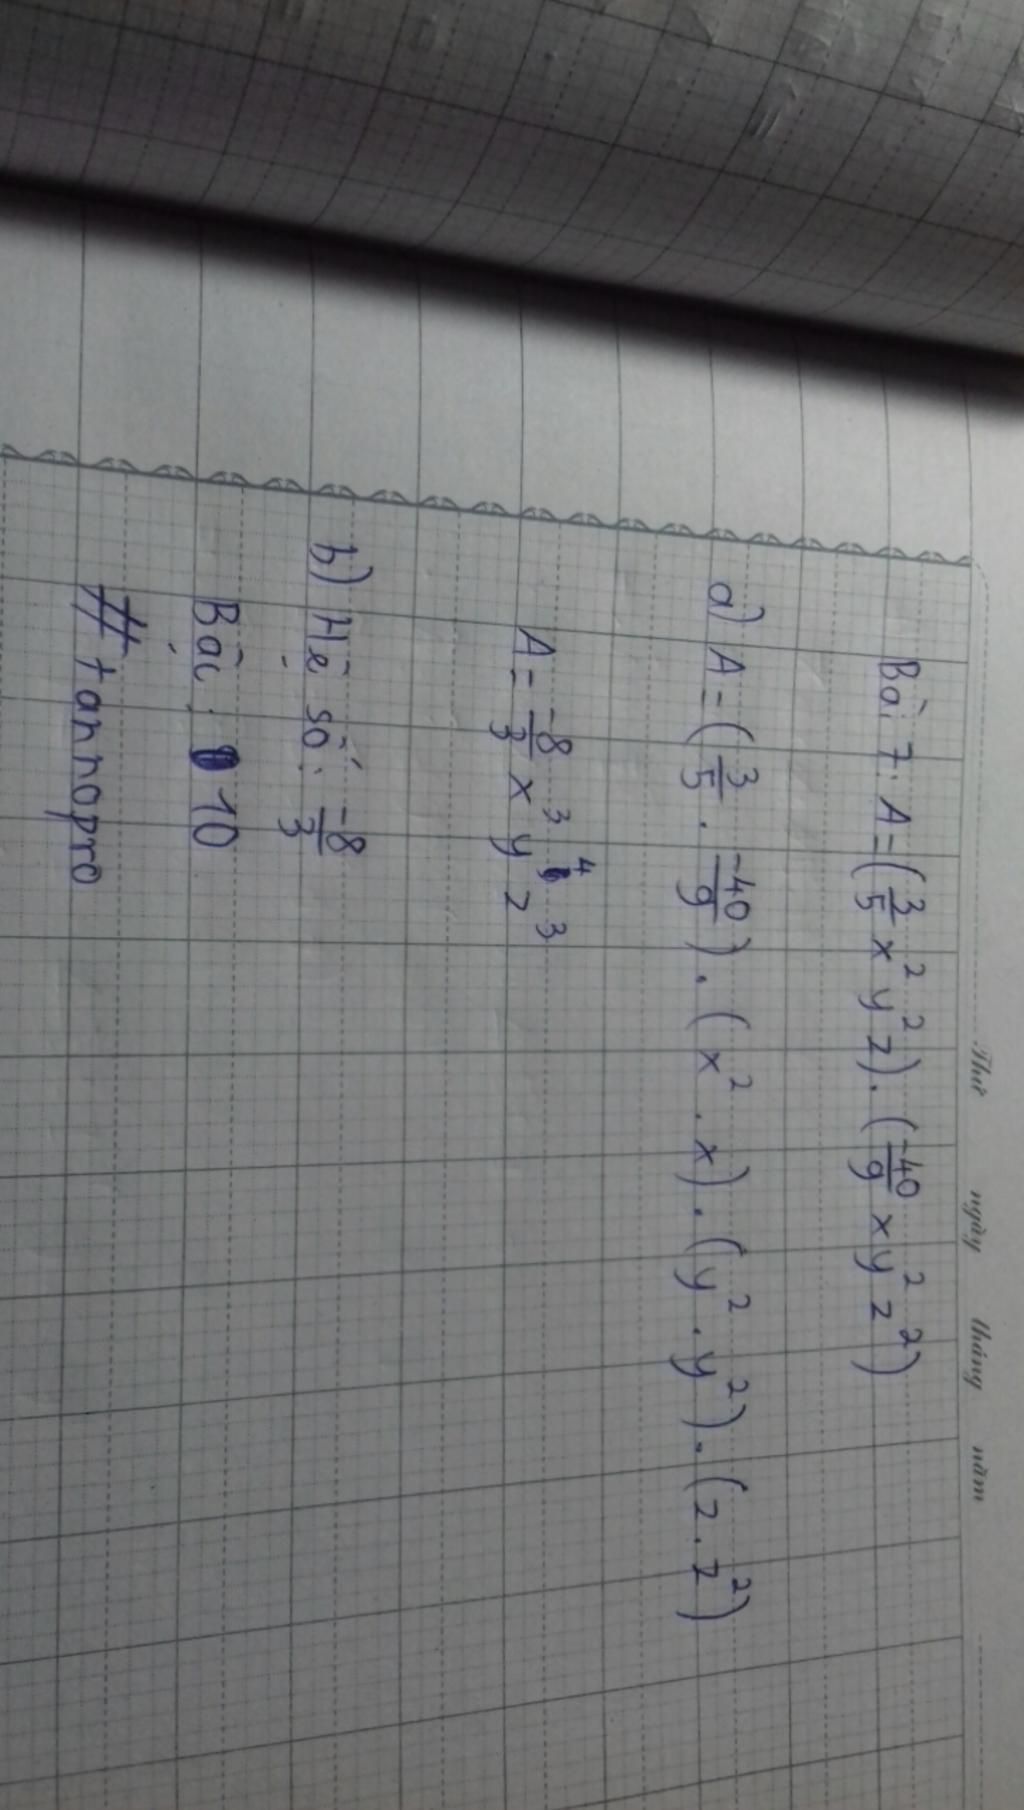 Thứ ngày tháng năm
Bài 7: A = (3/5 x² y² z) . (-40/9 x y² z²)
a) A = (3/5 . -40/9) . (x² . x) . (y² . y²) . (z . z²)
A = -8/3 x³ y⁴ z³
b) Hệ số: -8/3
Bậc: 10
# tannopro